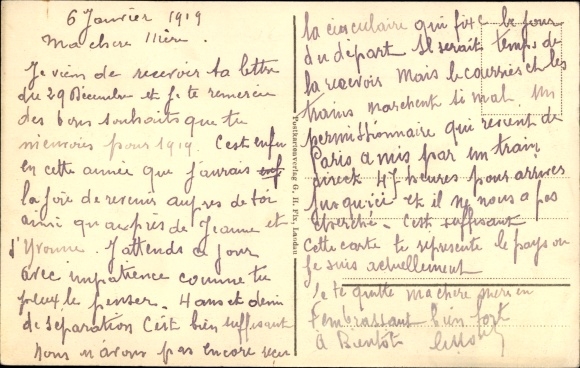 6 Janvier 1919
Ma chere Mère.
Je viens de recevoir ta lettre
du 29 Decembre et je te remercie
des bons souhaits que tu
m'envoies pour 1919. C'est enfin
en cette année que j'aurais
la joie de revenir aupres de toi
ainsi qu'auprès de Jeanne et
d'Yvonne. J'attends ce jour
avec impatience comme tu
peux le penser. 4 ans et demi
de séparation C'est bien suffisant
Nous n'avons pas encore reçu
la circulaire qui fixe le jour
du départ Il serait temps de
la recevoir Mais le courrier et les
trains marchent si mal. Un
permissionnaire qui revient de
Paris a mis par un train
direct 47 heures pour arriver
jusqu'ici et il ne nous a pas
cherché. C'est suffisant
Cette carte te represente le pays ou
je suis actuellement
Je te quitte ma chere mere en
t'embrassant bien fort
A Bientôt
Postkartenverlag G. H. Landau